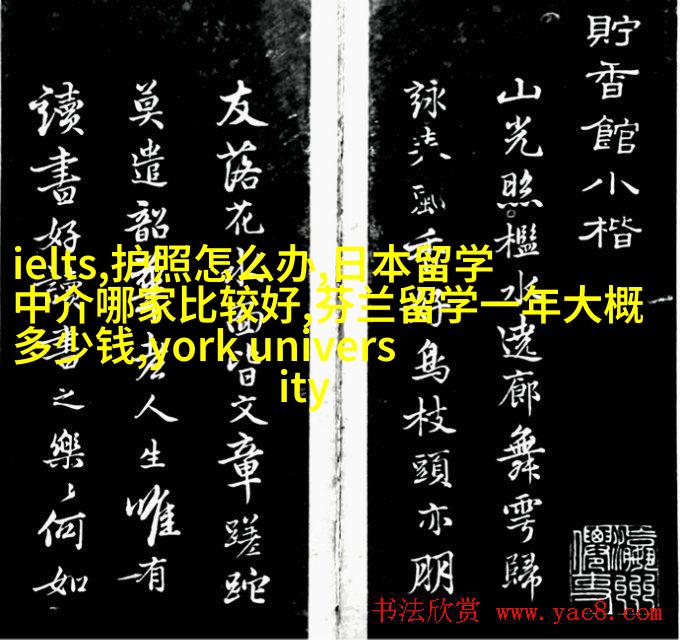 貯香館小楷
山光照檻水遶廊舞雩歸
詠春風香好鳥枝頭亦朋
友落花水面皆文章蹉跎
莫遣韶光老人生唯有
讀書好讀書之樂〻何如
ielts,护照怎么办,日本留学
中介哪家比较好,芬兰留学一年大概
多少钱,york univers
ity
书法欣赏 www.yac8.com